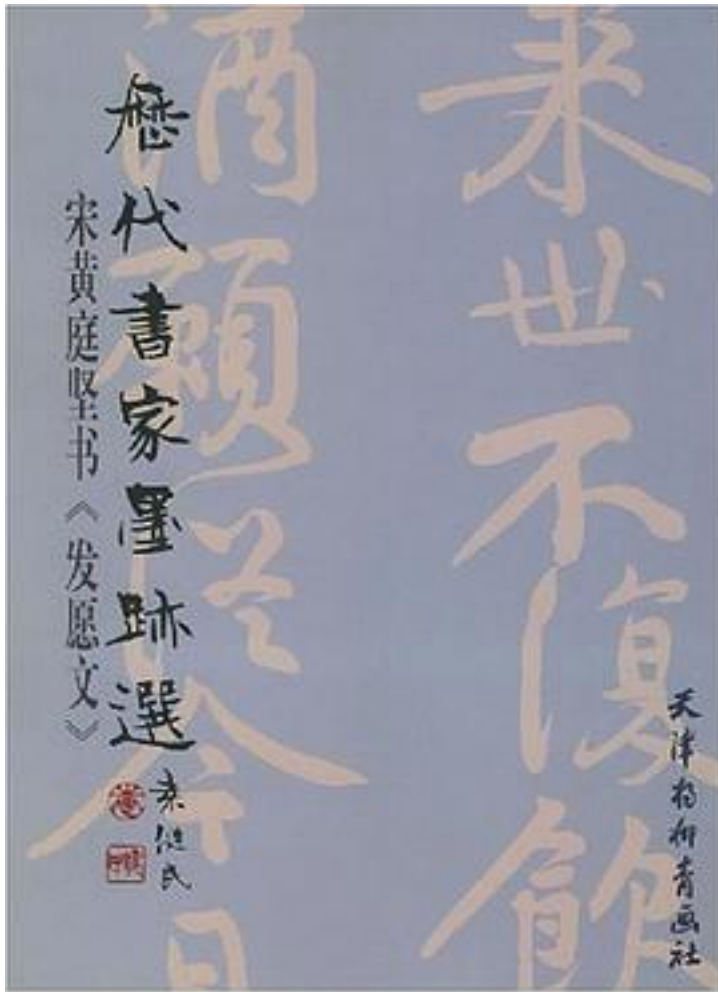 来世不復飲
酒願從今日
歷代書家墨跡選
宋黄庭坚书《发愿文》
天津杨柳青画社